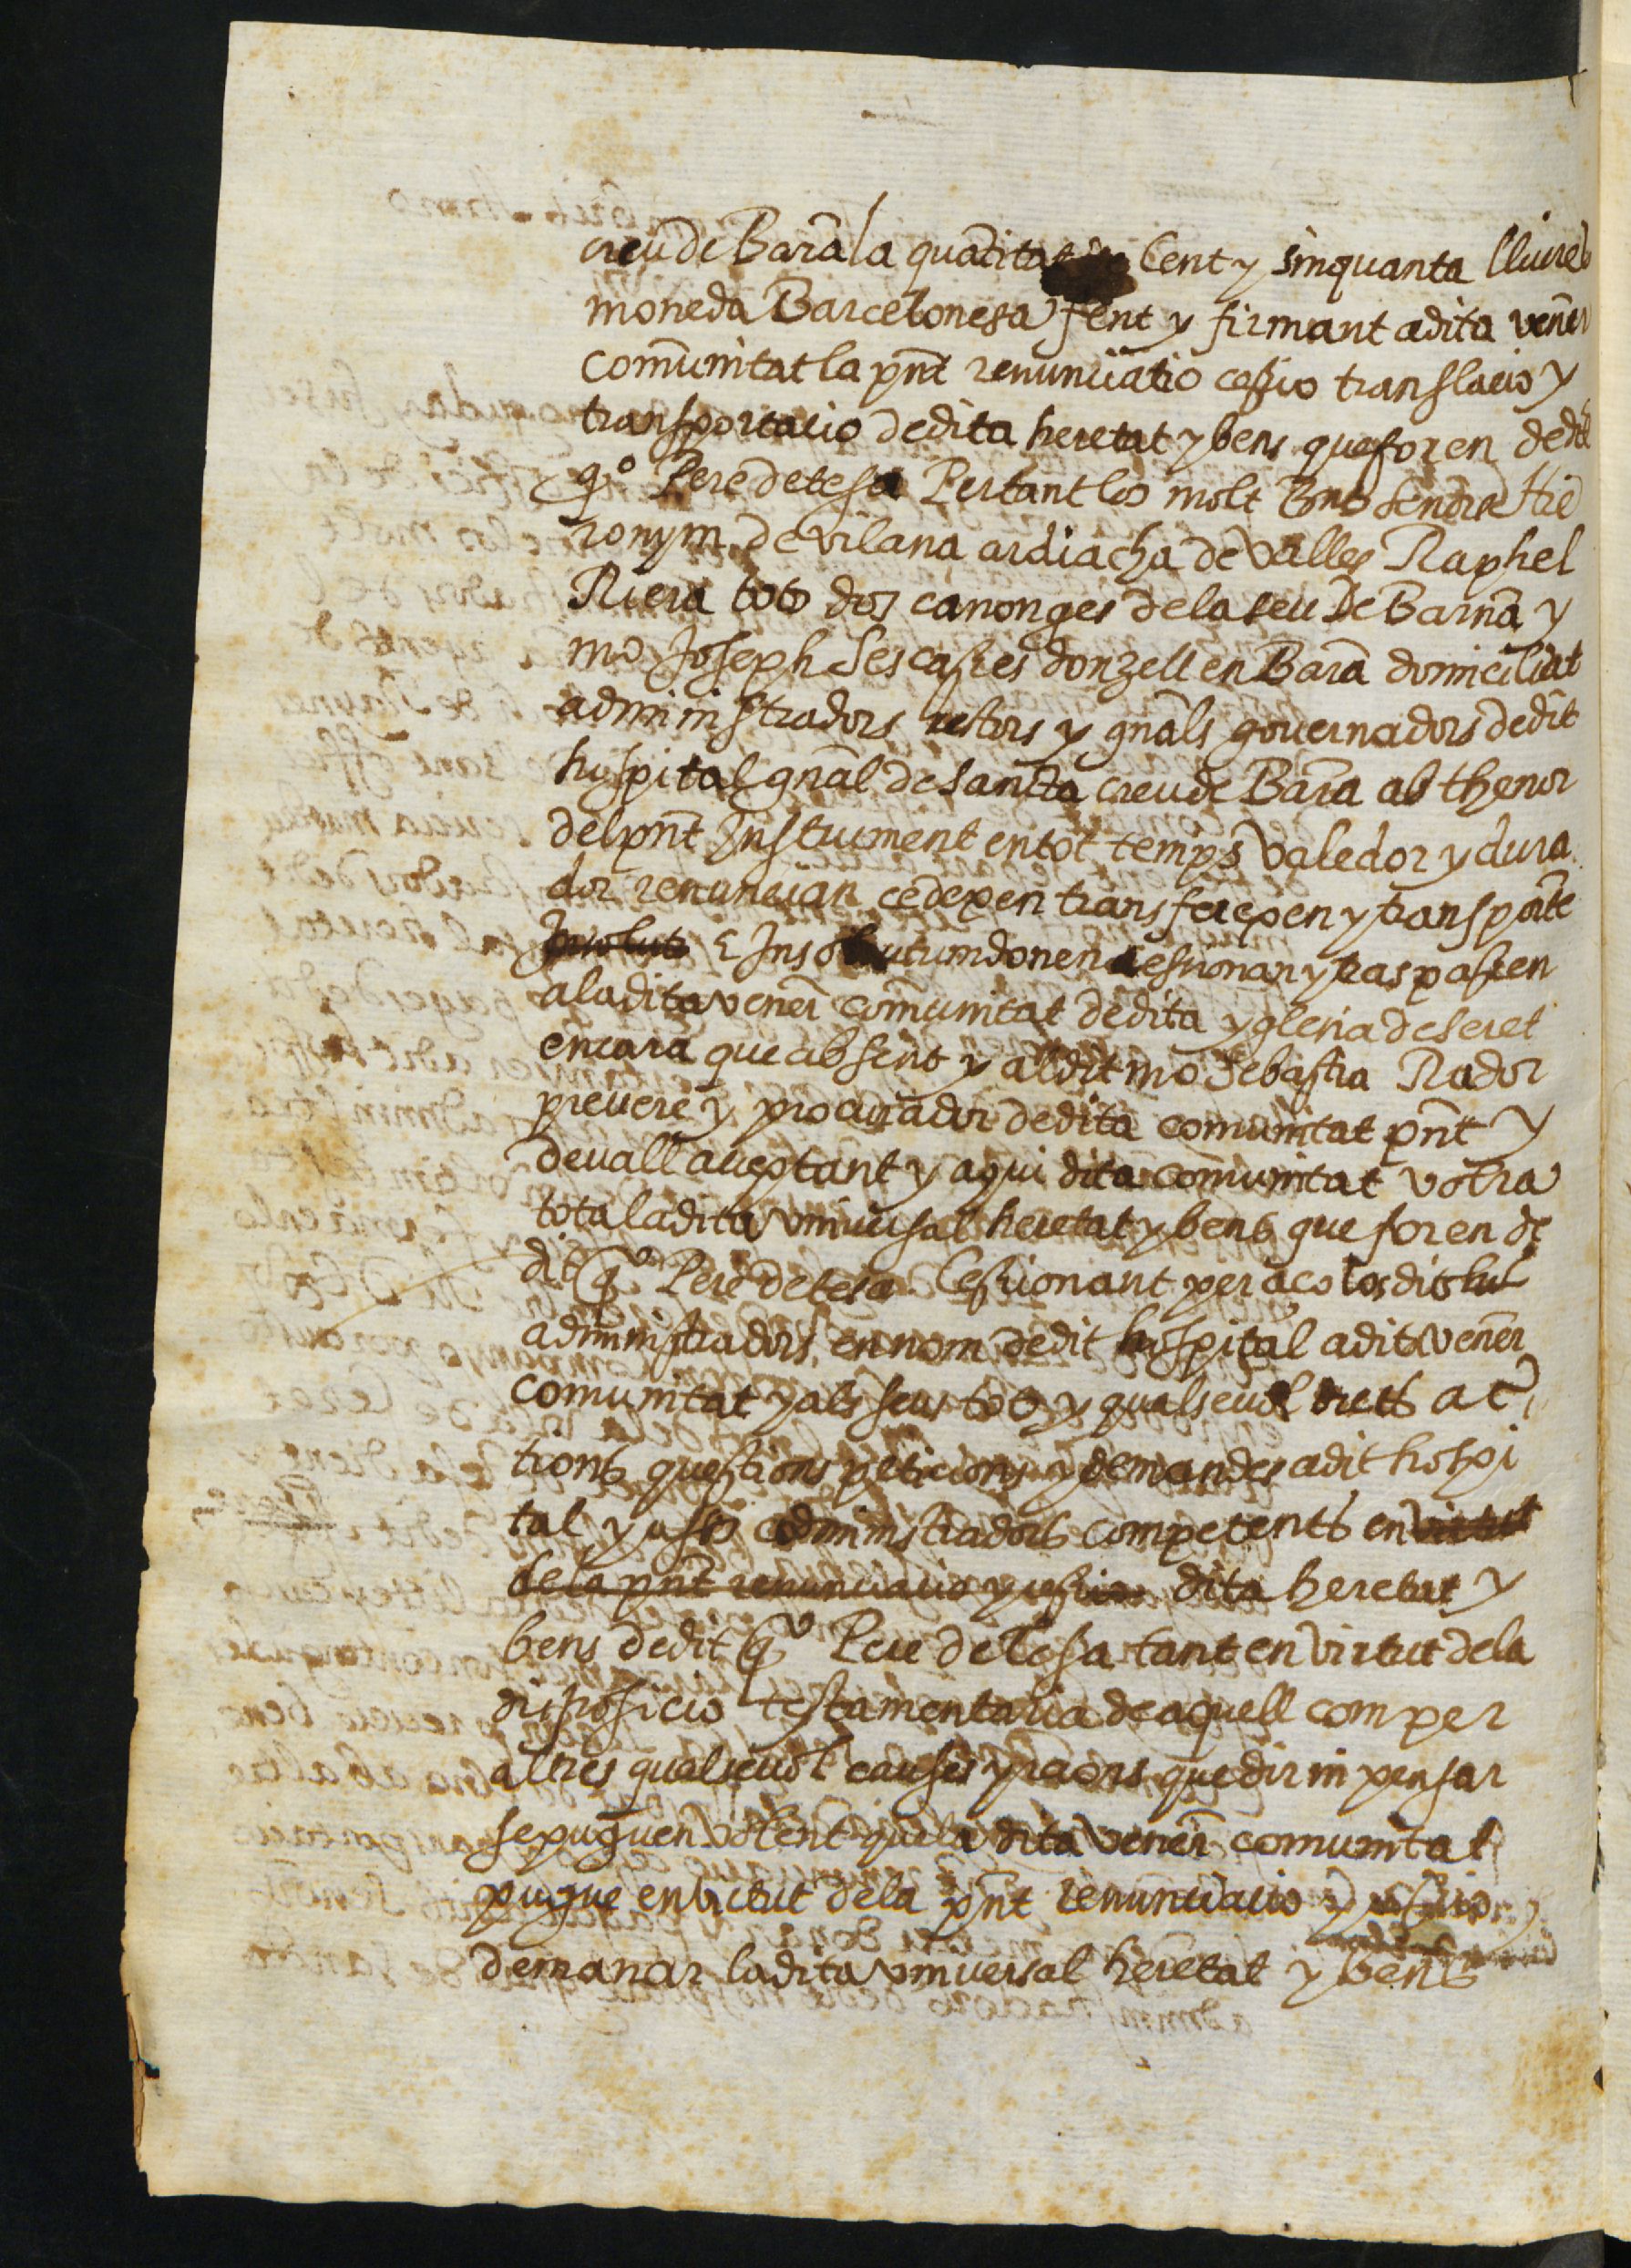 creu de Barã la quãtitat de Cent y sinquanta lliures
moneda Barcelonesa fent y firmant a dita vener
comũnitat la pnt renunciatio cessio translacio y
transportacio de dita heretat y bens que foren de dit
qº Pere de tesa Pertant los molt Rnts senors Hie
ronym de vilana ardiacha de Valles Raphel
Riera tots dos canonges de la seu de Barna y
mo Joseph Sescases donzell en Barã domiciliat
administradors rectors y gnals gouernadors de dit
hospital gnal de sancta creu de Barã ab thenor
del pnt Instrument en tot temps valedor y dura
dor renuncian cedexen transferexen y transporte
Insolut E Insolutum donen cessionan y traspassen
a la dita vener comunitat de dita yglesia de seret
encara que absent y al dit mo Sebastia Rador
preuere y procurador de dita comunitat pnt y
deuall acceptant y a qui dita comunitat volra
tota la dita vniuersal heretat y bens que foren de
dit qº Pere de tesa Cessionant per aço los dits
administradors en nom de dit hospital a dita vener
comunitat y als seus tots y qualseuol drets ac
tions questions peticions y demandes a dit hospi
tal y a sos administradors competents en virtut
de la pnt renunciacio y cessio dita heretat y
bens de dit qº Pere de Tesa tant en virtut de la
disposicio testamentaria de aquell com per
altres qualseuol causes y raons que dir ni pensar
se puguen volent que la dita vener comunitat
pugue en virtut de la pnt renunciacio y cessio
demanar la dita vniuersal heretat y bens